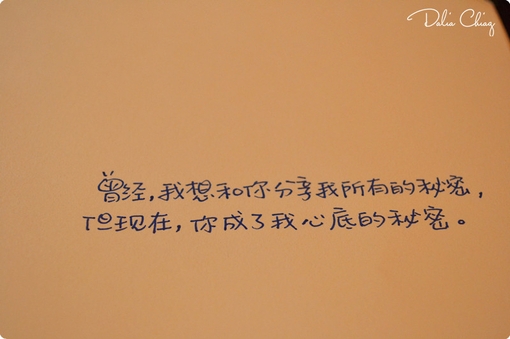 Dalia Chiag
曾经,我想和你分享我所有的秘密,
但现在,你成了我心底的秘密。